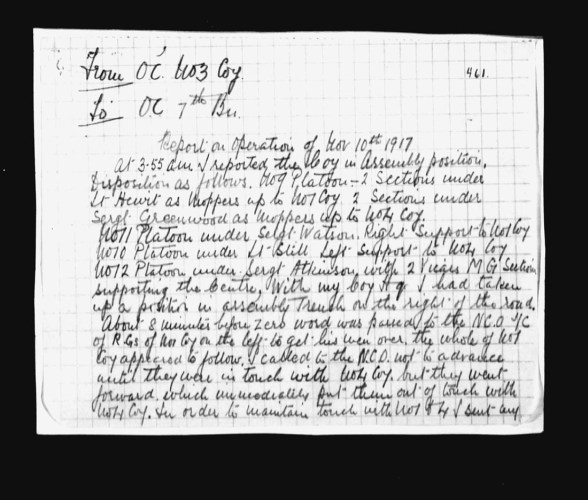 From OC. No3 Coy.
461.
To OC 7th Bn.
Report on Operation of Nov 10th 1917
At 3-55 am I reported the Coy in Assembly position.
Disposition as follows. No9 Platoon - 2 Sections under
Lt Hewit as Moppers up to No1 Coy. 2 Sections under
Sergt Greenwood as Moppers up to No4 Coy.
No11 Platoon under Sergt Watson. Right Support to No1 Coy
No10 Platoon under Lt Still Left Support to No4 Coy
No12 Platoon under Sergt Atkinson with 2 M G Section
supporting the Centre. With my Coy Hq I had taken
up a position in assembly Trench on the right of the road.
About 8 minutes before zero word was passed to the N.C.O I/C
of R Gs of No1 Coy on the left to get his men over, the whole of No1
Coy appeared to follow. I called to the N.C.O. not to advance
until they were in touch with No4 Coy. but they went
forward, which immediately put them out of touch with
No4 Coy. In order to maintain touch with No1 & 4 I sent my